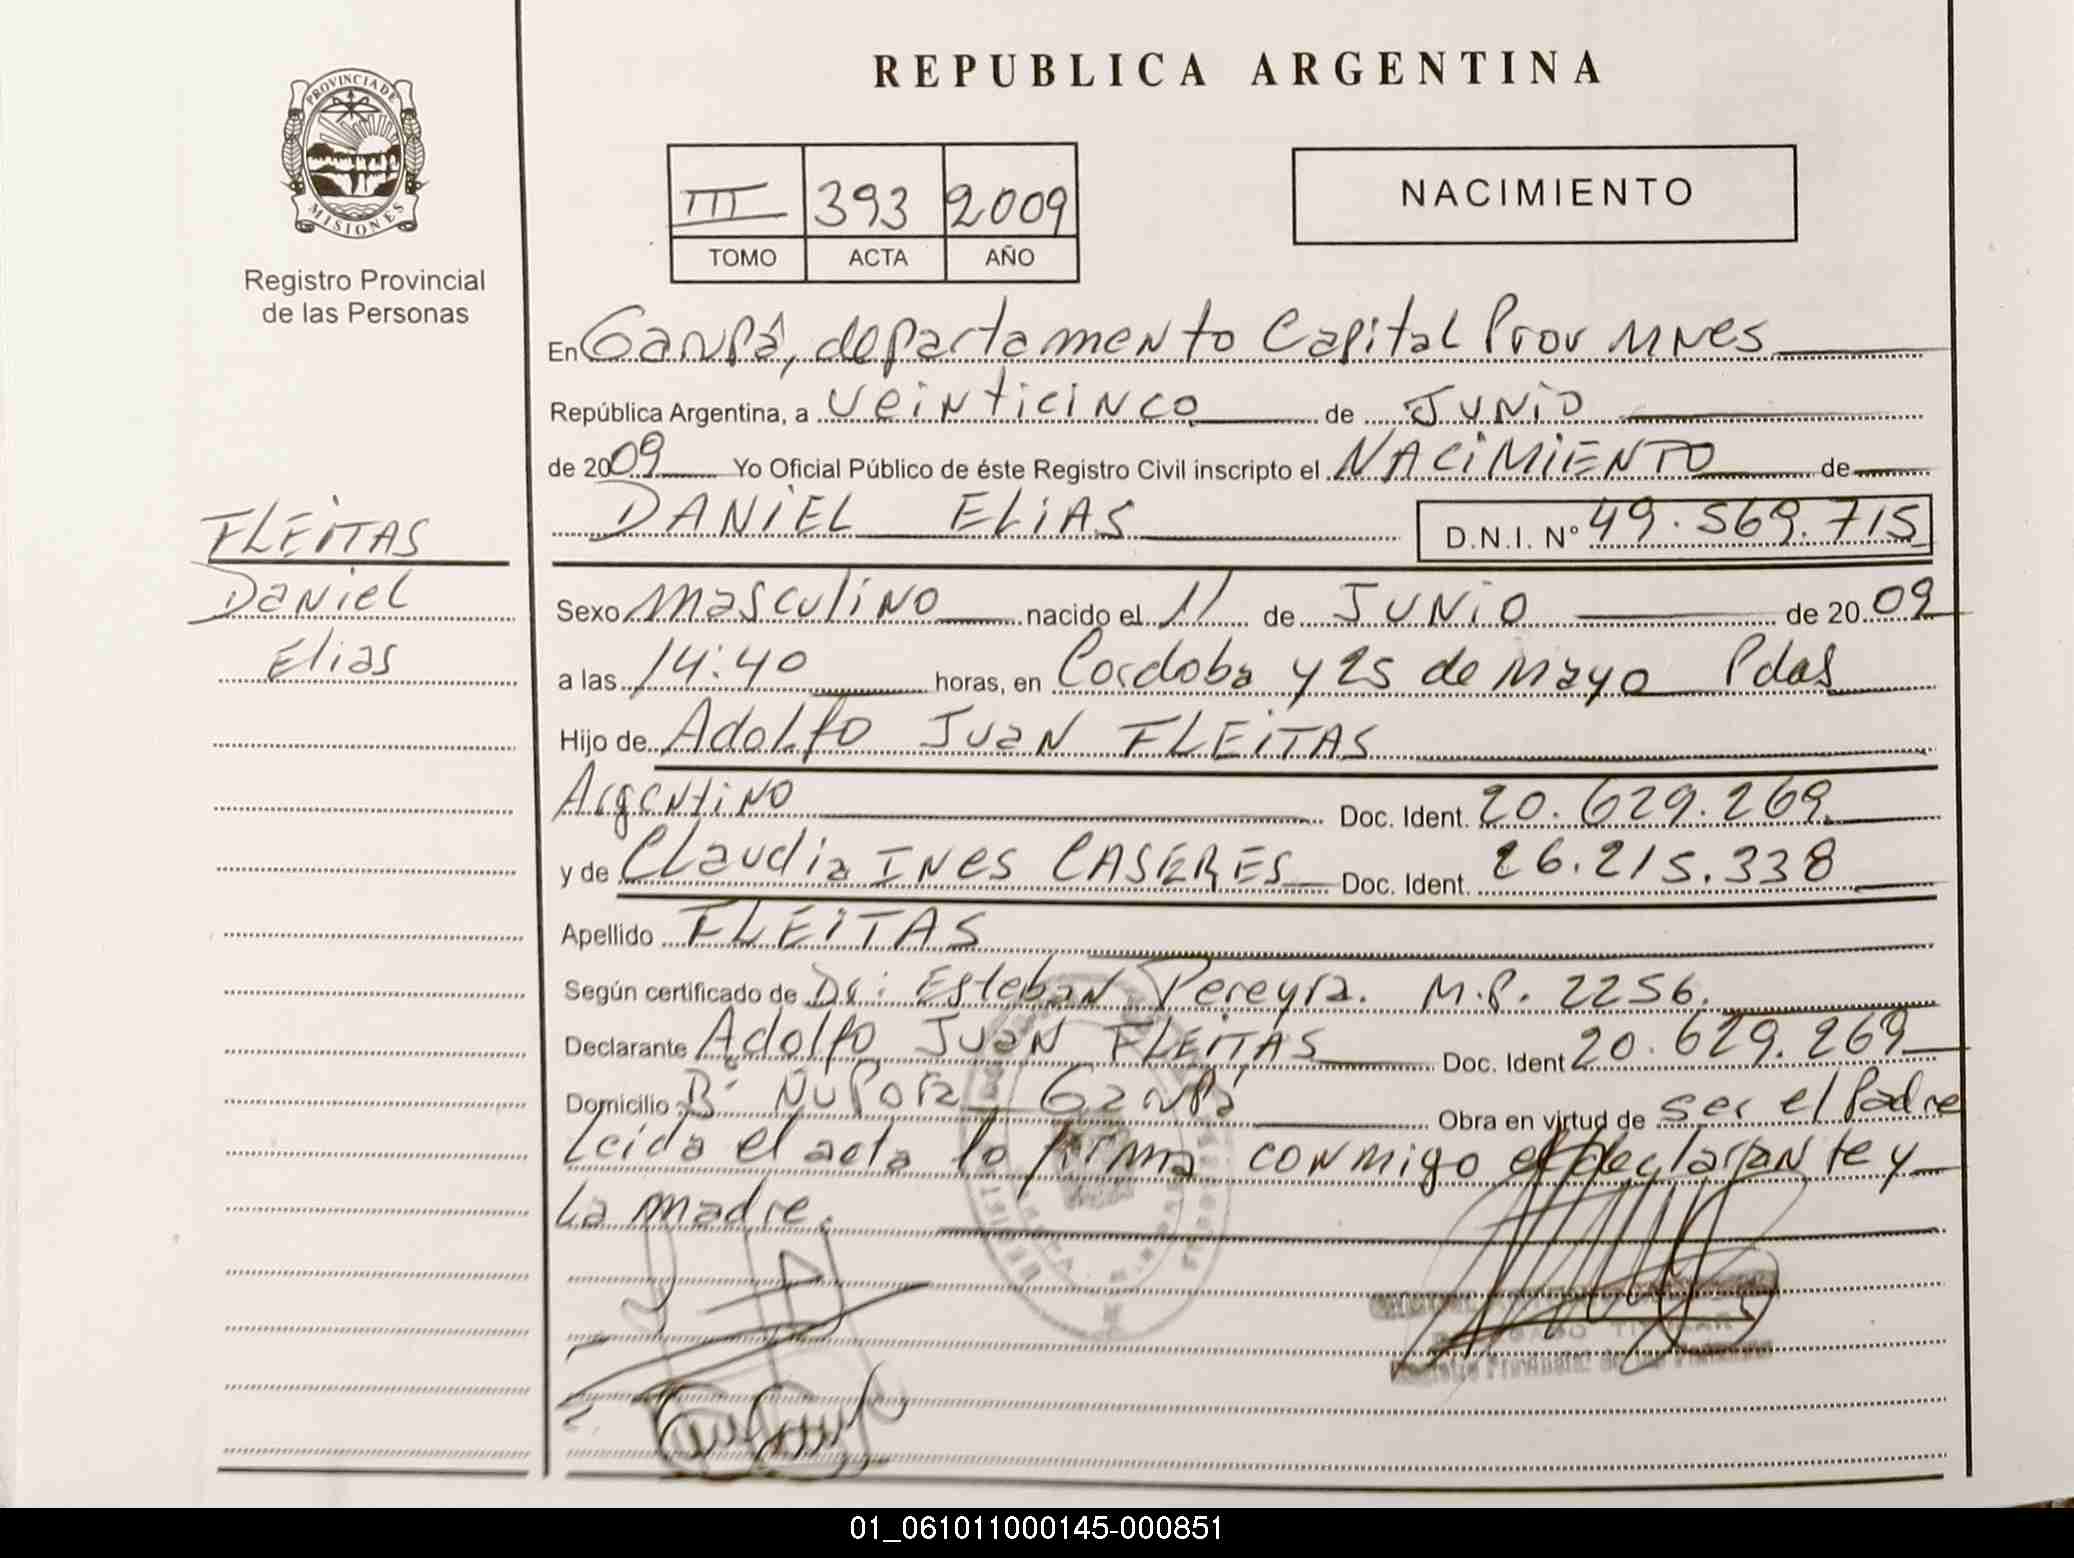 REPUBLICA ARGENTINA
PROVINCIA DE
MISIONES
Registro Provincial
de las Personas
III 393 2009
TOMO ACTA AÑO
NACIMIENTO
En Garupá, departamento Capital Prov Mnes
República Argentina, a veinticinco de JUNIO
de 2009 Yo Oficial Público de éste Registro Civil inscripto el NACIMIENTO de
DANIEL ELIAS D.N.I. Nº 49.569.715
FLEITAS
Daniel
Elias
Sexo masculino nacido el 11 de JUNIO de 2009
a las 14:40 horas, en Cordoba y 25 de Mayo Pdas
Hijo de Adolfo Juan FLEITAS
Argentino Doc. Ident. 20.629.269
y de Claudia INES CASERES Doc. Ident. 26.215.338
Apellido FLEITAS
Según certificado de Dr: Esteban Pereyra. M.P. 2256.
Declarante Adolfo Juan FLEITAS Doc. Ident 20.629.269
Domicilio Bº Ñu Porá Garupá Obra en virtud de ser el Padre
Leida el acta la firma conmigo el declarante y
la madre.
01_061011000145-000851